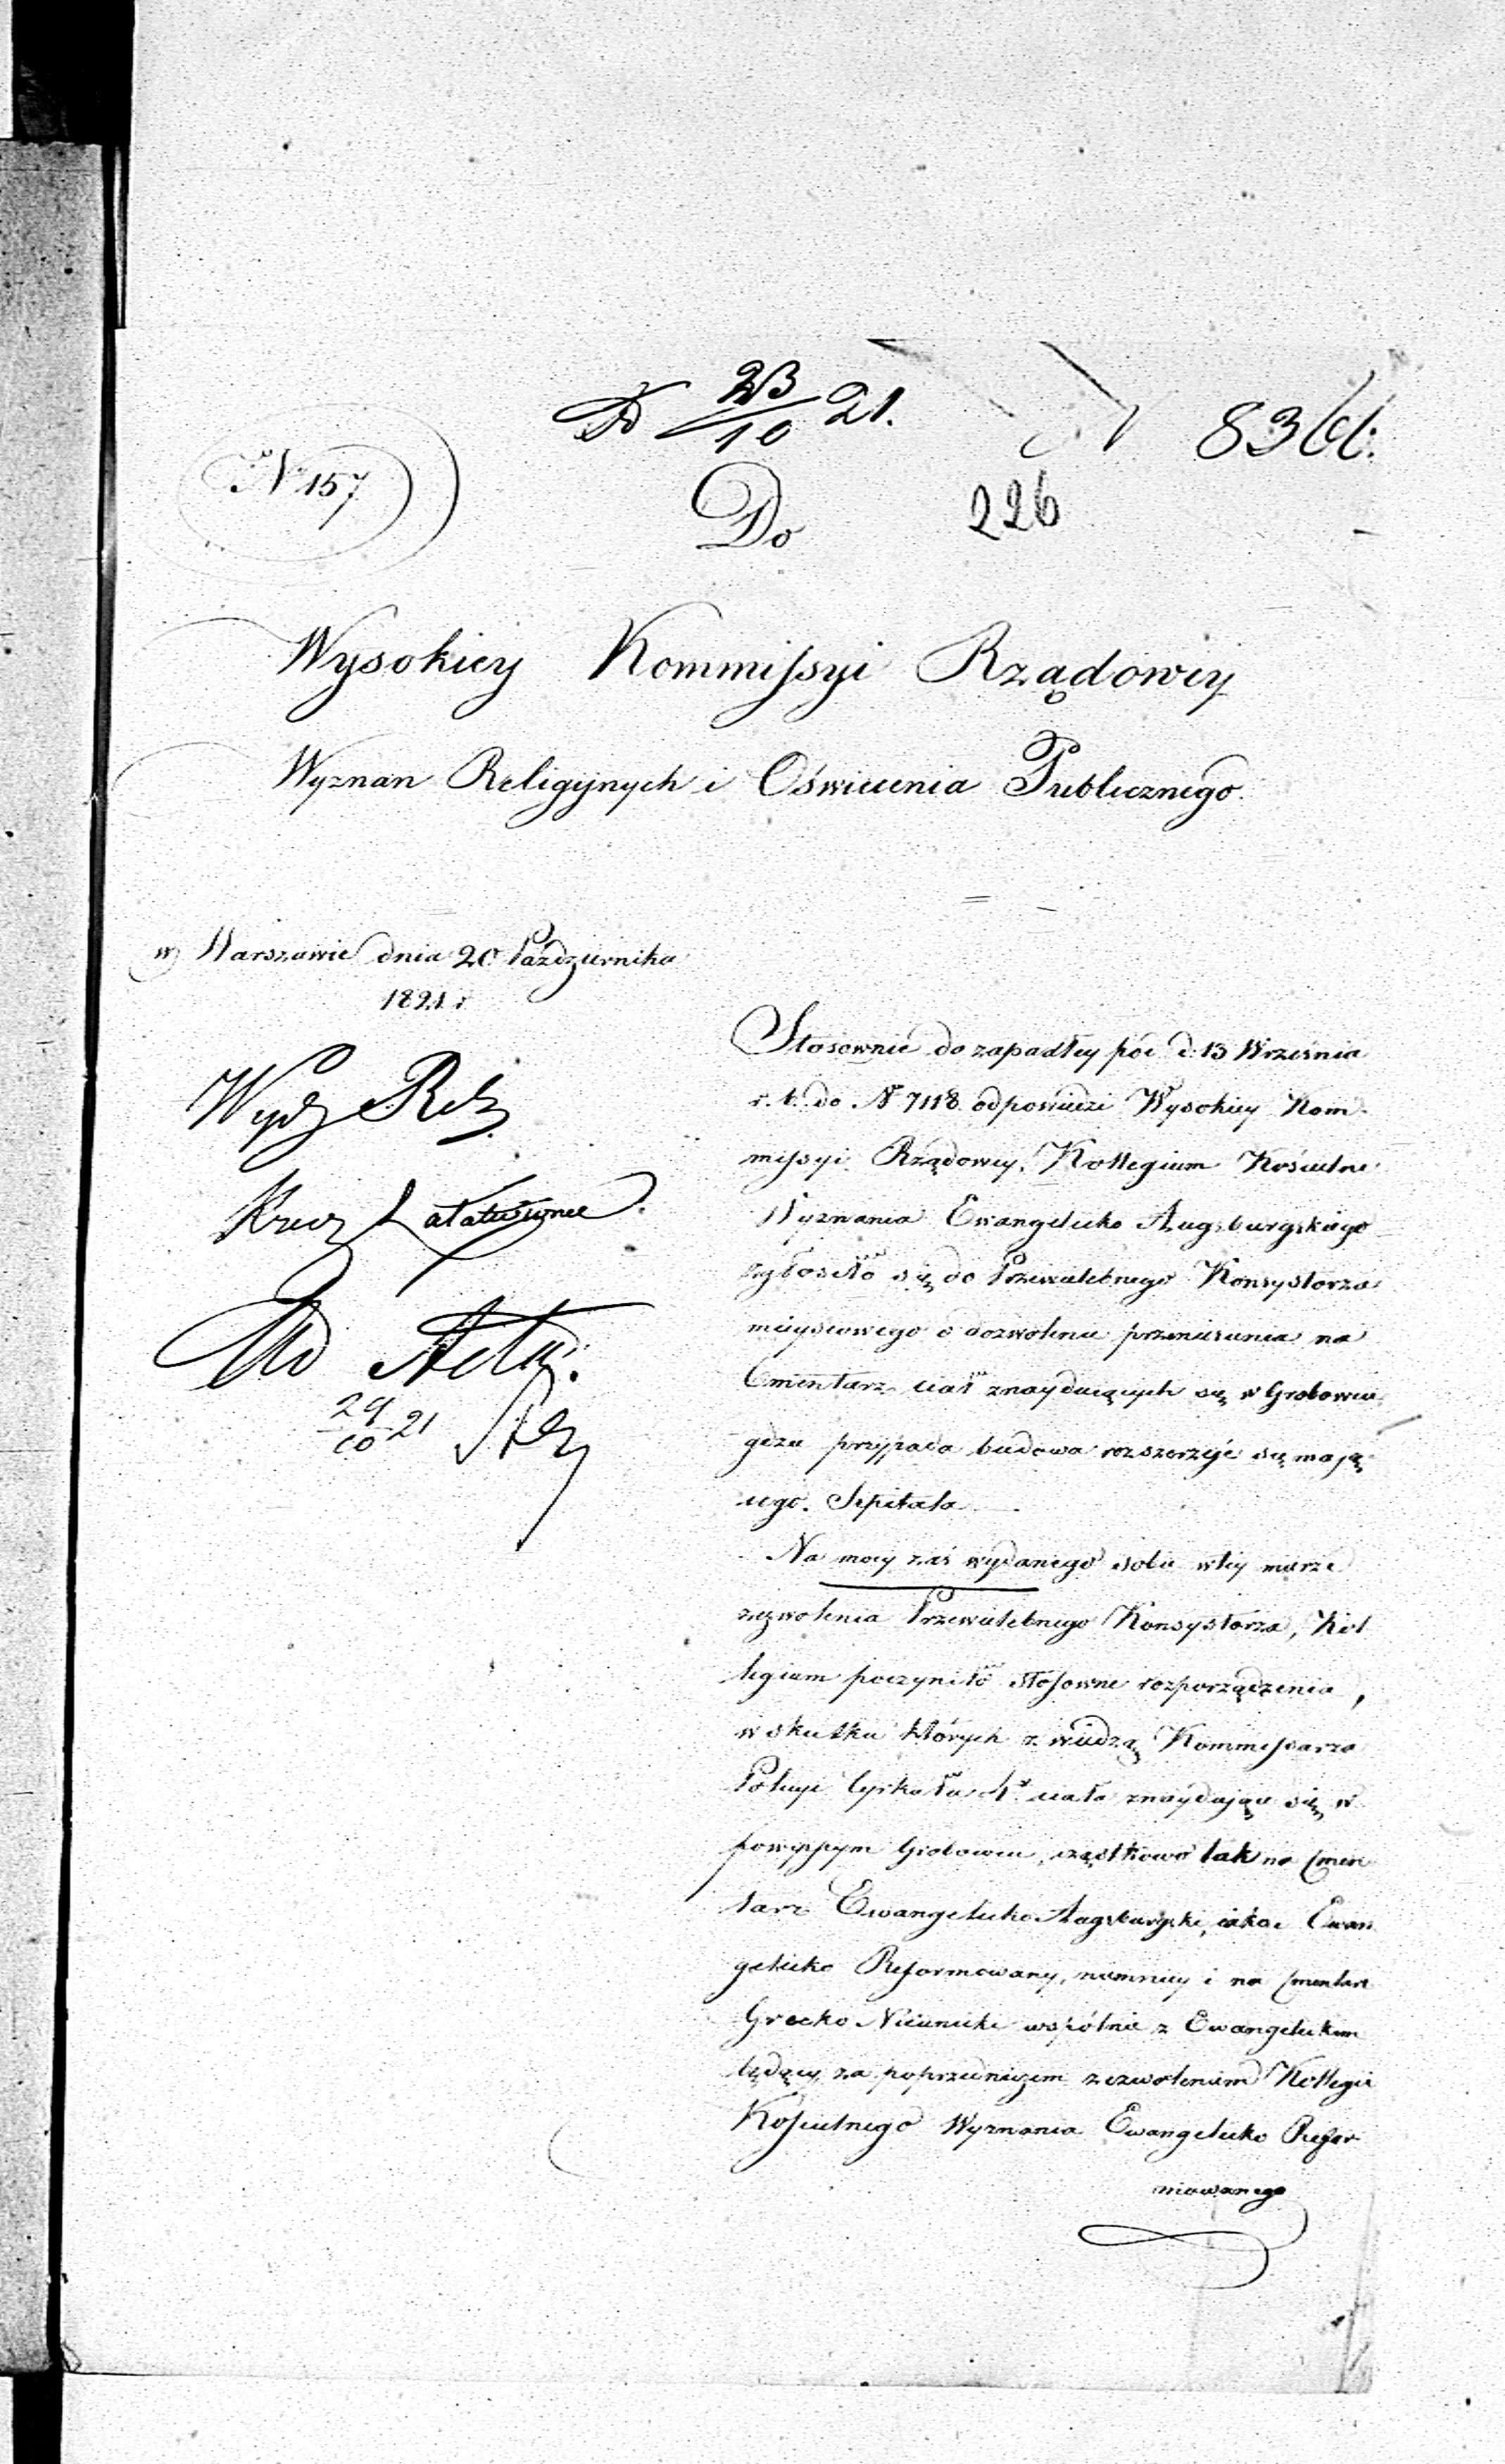 23/10 21.
N 157
Do
226
Wysokiey Kommissyi Rządowey
Wyznań Religiynych i Oświecenia Publicznego.
w Warszawie dnia 20 Października
1821 r
Wydz Rel.
Ad Acta.
29/10 21
Stosownie do zapadłey pód d. 13 Września
r. b. do N 7118 odpowiedzi Wysokiey Kom
missyi Rządowey, Kollegium Kościelne
Wyznania Ewangelicko Augsburgskiego
zgłosiło się do Przewielebnego Konsystorza
mieyscowego o dozwolenie przeniesienia na
Cmentarz ciał znayduiących się w Grobowcu
gdzie przypada budowa rozszerzyć się mają
cego Szpitala
Na mocy zaś wydanego sobie w tey mierze
zezwolenia Przewielebnego Konsystorza, Kol
legium poczyniło stósowne rozporządzenia,
w skutku których z wiedzą Kommissarza
Policyi Cyrkułu 4º ciała znaydujące się w
powyższym Grobowcu, cząstkowo tak na Cmen
tarz Ewangelicko Augsburgski, iako i Ewan
gelicko Reformowany, niemniey i na Cmentarz
Grecko Nieunicki wspólnie z Ewangelickim
będący za poprzedniczem zezwoleniem Kollegii
Kościelnego Wyznania Ewangelicko Refor
mowanego